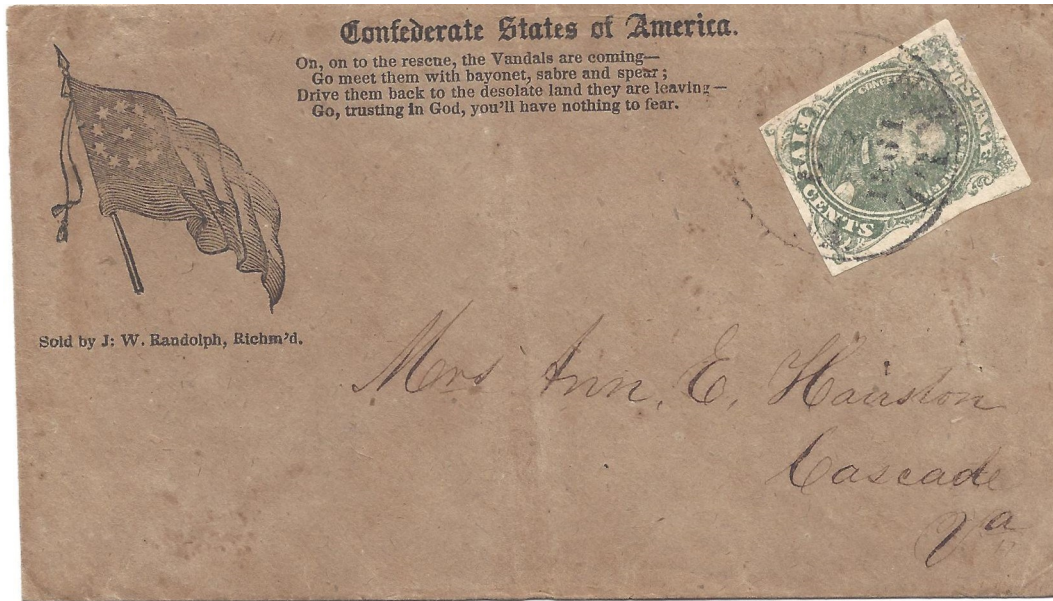 Confederate States of America.
On, on to the rescue, the Vandals are coming—
Go meet them with bayonet, sabre and spear;
Drive them back to the desolate land they are leaving—
Go, trusting in God, you'll have nothing to fear.
POSTAGE
FIVE
CENTS
1861
Sold by J: W. Randolph, Richm'd.
Mrs Ann, E, Hairston
Cascade
Va